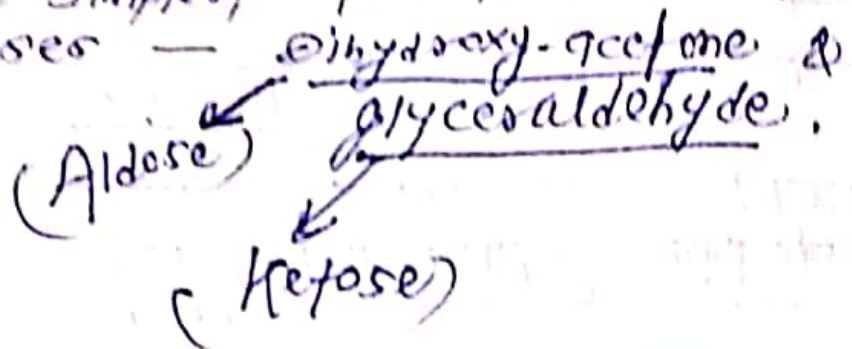 ses — Dihydroxy-acetone &
glyceraldehyde.
(Aldose)
(Ketose)